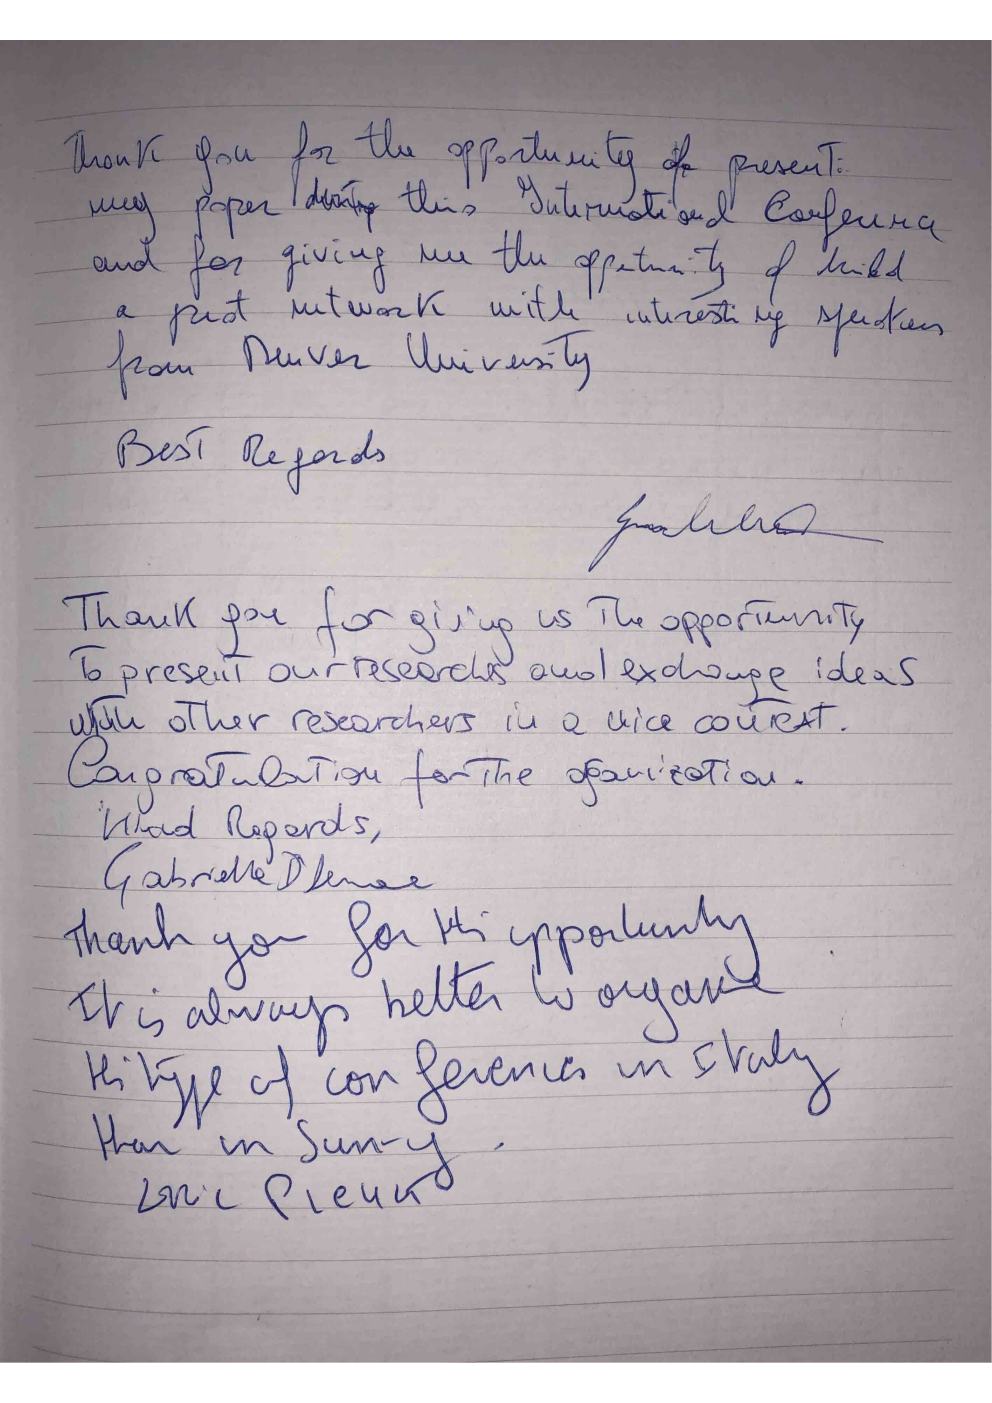 Thank you for the opportunity of present
my paper during this International Conference
and for giving me the oppotunity of build
a great network with interesting speakers
from Denver University
Best Regards
Thank you for giving us The opportunity
To present our researchs and exchange ideas
with other researchers in a nice context.
Congratulation for The organization.
Kind Regards,
Gabriella
Thank you for this opportunity
It is always better to organize
this type of conferences in Italy
than in